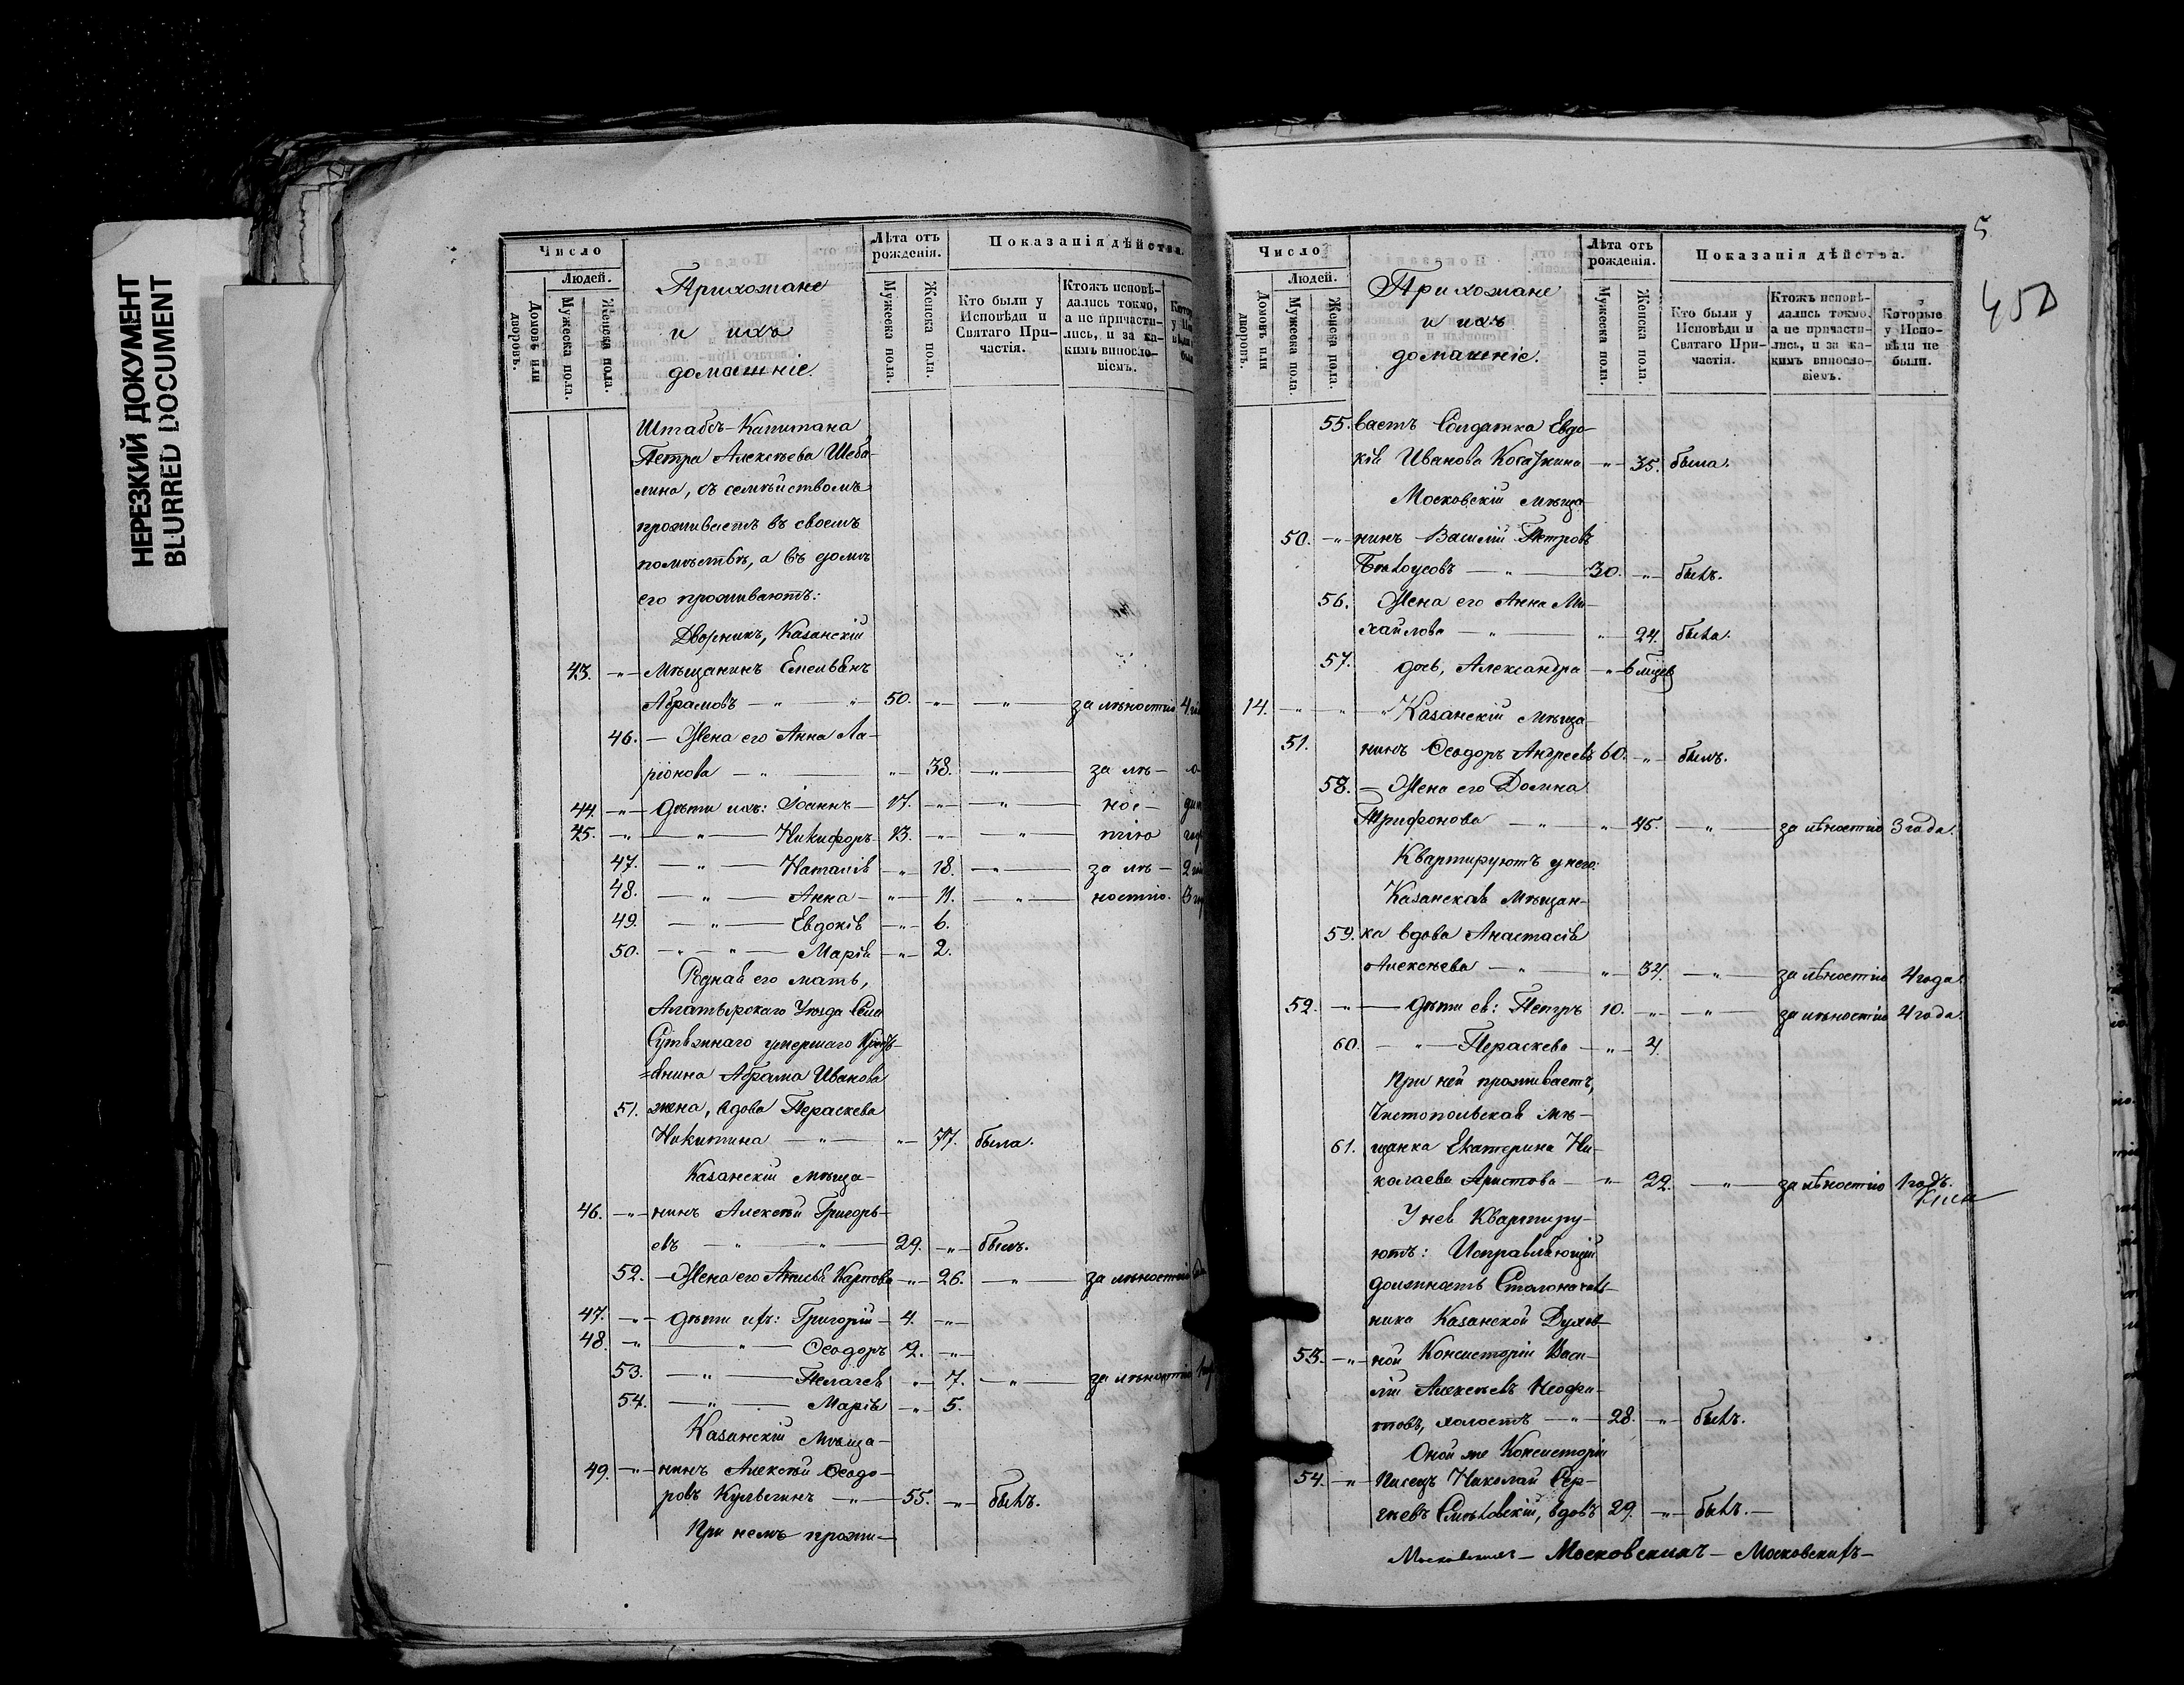 НЕРЕЗКИЙ ДОКУМЕНТ
BLURRED DOCUMENT
Число
Людей.
Домовъ или дворовъ.
Мужеска пола.
Женска пола.
Прихожане
и ихъ
домашніе.
Лѣта отъ рожденія.
Мужеска пола.
Женска пола.
Показанія дѣйства.
Кто были у Исповѣди и Святаго При-частія.
Ктожъ исповѣ-дались токмо, а не причасти-лись, и за ка-кимъ винословіемъ.
Штабсъ-Капитана
Петра Алексѣева Шеба-
лина, съ семѣйствомъ
проживаетъ въ своемъ
помѣстьѣ, а въ домѣ
его проживаютъ:
Дворникъ, Казанскій
43. -"- Мѣщанинъ Емельянъ
Абрамовъ - " - " 50. -"- -"- за лѣностію 4
46. - Жена его Анна Ла-
ріонова - " - " - 38. -"- за лѣ-
44. -"- Дѣти ихъ: Іоаннъ - 17. -"- -"- нос-
45. -"- " - Никифоръ 13. -"- -"- тію
47. - " - Наталія -"- 18. -"- за лѣ- 2
48. - " - Анна - " - 11. -"- ностію. 3
49. - " - Евдокія -"- 6.
50. -"- " - Марія -"- 2.
Родная его мать,
Алатырскаго Уѣзда Села
умершаго Кресть-
=янина Абрама Иванова
51. жена, вдова Параскева
Никитина - " - " - 77. была.
Казанскій мѣща-
46. -"- нинъ Алексѣй Григорь-
евъ - " - " - 29. -"- былъ.
52. - Жена его Карпова -"- 26. -"- за лѣностію
47. -"- Дѣти ихъ: Григорій - 4. -"-
48. -"- " - Ѳеодоръ 2. -"-
53. - " - Пелагея " - 7. -"- за лѣностію
54. - " - Марія -"- 5.
Казанскій Мѣща-
49. -"- нинъ Алексѣй Ѳеодо-
ровъ -"- 55. -"- былъ.
При немъ прожи-
5
450
Число
Людей.
Домовъ или дворовъ.
Мужеска пола.
Женска пола.
Прихожане
и ихъ
домашніе.
Лѣта отъ рожденія.
Мужеска пола.
Женска пола.
Показанія дѣйства.
Кто были у Исповѣди и Святаго При-частія.
Ктожъ исповѣ-дались токмо, а не причасти-лись, и за ка-кимъ винословіемъ.
Которые у Испо-вѣди не были.
55. ваетъ Солдатка Евдо-
кія Иванова -"- 35. была.
Московскій мѣща-
50. -"- нинъ Василій Петровъ
Бѣлоусовъ - " - 30. -"- былъ.
56. Жена его Анна Ми-
хайлова - " - " - 24. была.
57. дочь, Александра -"- 6 мѣсяц
14. -"- " - " Казанскій мѣща-
51. нинъ Ѳеодоръ Андреевъ 60. -"- былъ.
58. - Жена его Домна
Трифонова -"- " - 45. -"- за лѣностію 3 года.
Квартируютъ у него:
Казанская Мѣщан-
59. ка вдова Анастасія
Алексѣева - " - " - 34. -"- за лѣностію 4 года.
52. -"- дѣти ея: Петръ 10. -"- -"- за лѣностію 4 года.
60. - " - Параскева -"- 4.
При ней проживаетъ,
Чистопольская мѣ-
61. щанка Екатерина Ни-
колаева Аристова -"- 22. -"- за лѣностію 1 годъ.
У нея Квартиру-
ютъ: Исправляющій
должность Столоначаль-
ника Казанской Духов-
53. -"- ной Консисторіи Васи-
лій Алексѣевъ Неофи-
товъ, холостъ -"- 28. -"- былъ.
Оной же Консисторіи
54. -"- Писецъ Николай Сер-
гѣевъ вдовъ 29. -"- былъ. -
Московскихъ - Московскихъ - Московскихъ -